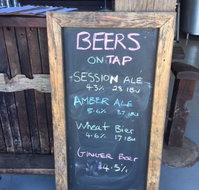 BEERS
ON TAP
SESSION ALE
4.3% 23 IBU
AMBER ALE
5.6% 37 IBU
Wheat Bier
4.6% 17 IBU
GINGER Beer
4.5%